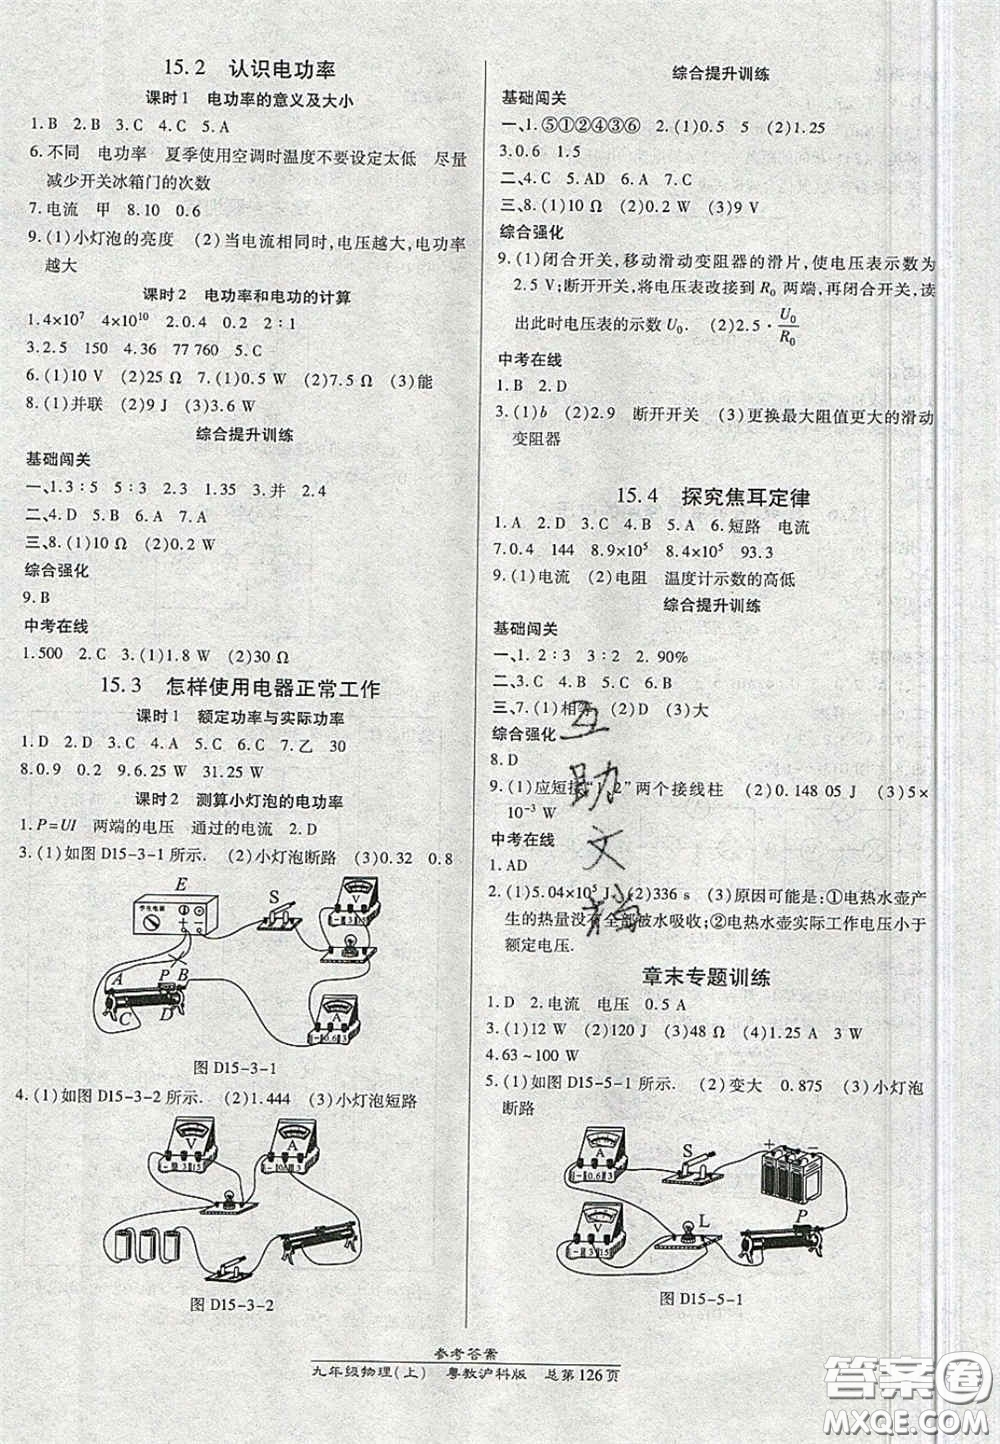 15.2 认识电功率
课时1 电功率的意义及大小
1.B 2.B 3.C 4.C 5.A
6.不同 电功率 夏季使用空调时温度不要设定太低 尽量
减少开关冰箱门的次数
7.电流 甲 8.10 0.6
9.(1)小灯泡的亮度 (2)当电流相同时,电压越大,电功率
越大
课时2 电功率和电功的计算
1.4×10⁷ 4×10¹⁰ 2.0.4 0.2 2∶1
3.2.5 150 4.36 77 760 5.C
6.(1)10 V (2)25 Ω 7.(1)0.2 W (2)7.5 Ω (3)能
8.(1)并联 (2)9 J (3)3.6 W
综合提升训练
基础闯关
一、1.3∶5 5∶3 2.3 1.35 3.并 2.4
二、4.D 5.D 6.D 7.A
三、8.(1)10 Ω (2)0.2 W
综合强化
9.B
中考在线
1.500 2.C 3.(1)1.8 W (2)30 Ω
15.3 怎样使用电器正常工作
课时1 额定功率与实际功率
1.D 2.D 3.D 4.A 5.A 6.C 7.乙 30
8.0.9 0.2 9.6.25 W 31.25 W
课时2 测算小灯泡的电功率
1.P=UI 两端的电压 通过的电流 2.D
3.(1)如图D15-3-1所示. (2)小灯泡断路 (3)0.32 0.8
E
学生电源
S
V
A P B
C D
A
-0.6 3
图 D15-3-1
4.(1)如图D15-3-2所示. (2)1.444 (3)小灯泡短路
V
- 3 15
A
-0.6 3
图 D15-3-2
综合提升训练
基础闯关
一、1.⑤①②④③⑥ 2.(1)0.5 5 (2)1.25
3.0.6 1.5
二、4.C 5.AD 6.A 7.C
三、8.(1)10 Ω (2)0.2 W (3)9 V
综合强化
9.(1)闭合开关,移动滑动变阻器的滑片,使电压表示数为
2.5 V;断开开关,将电压表改接到 R₀ 两端,再闭合开关,读
出此时电压表的示数 U₀. (2)2.5·U₀/R₀
中考在线
1.B 2.D
3.(1)b (2)2.9 断开开关 (3)更换最大阻值更大的滑动
变阻器
15.4 探究焦耳定律
1.A 2.D 3.C 4.B 5.A 6.短路 电流
7.0.4 144 8.9×10⁵ 8.4×10⁵ 93.3
9.(1)电流 (2)电阻 温度计示数的高低
综合提升训练
基础闯关
一、1.2∶3 3∶2 2.90%
二、3.D 4.B 5.A 6.B
三、7.(1)相等 (2)D (3)大
综合强化
8.D
9.(1)应短接“1、2”两个接线柱 (2)0.148 05 J (3)5×
10⁻³ W
中考在线
1.AD
2.(1)5.04×10⁵ J (2)336 s (3)原因可能是:①电热水壶产
生的热量没有全部被水吸收;②电热水壶实际工作电压小于
额定电压.
章末专题训练
1.D 2.电流 电压 0.5 A
3.(1)12 W (2)120 J (3)48 Ω (4)1.25 A 3 W
4.63~100 W
5.(1)如图D15-5-1所示. (2)变大 0.875 (3)小灯泡
断路
A
- 0.6 3
S
+ -
V
- 3 15
L
P
图 D15-5-1
互助文档
参考答案
九年级物理(上) 粤教沪科版 总第126页
答案圈
MXQE.COM